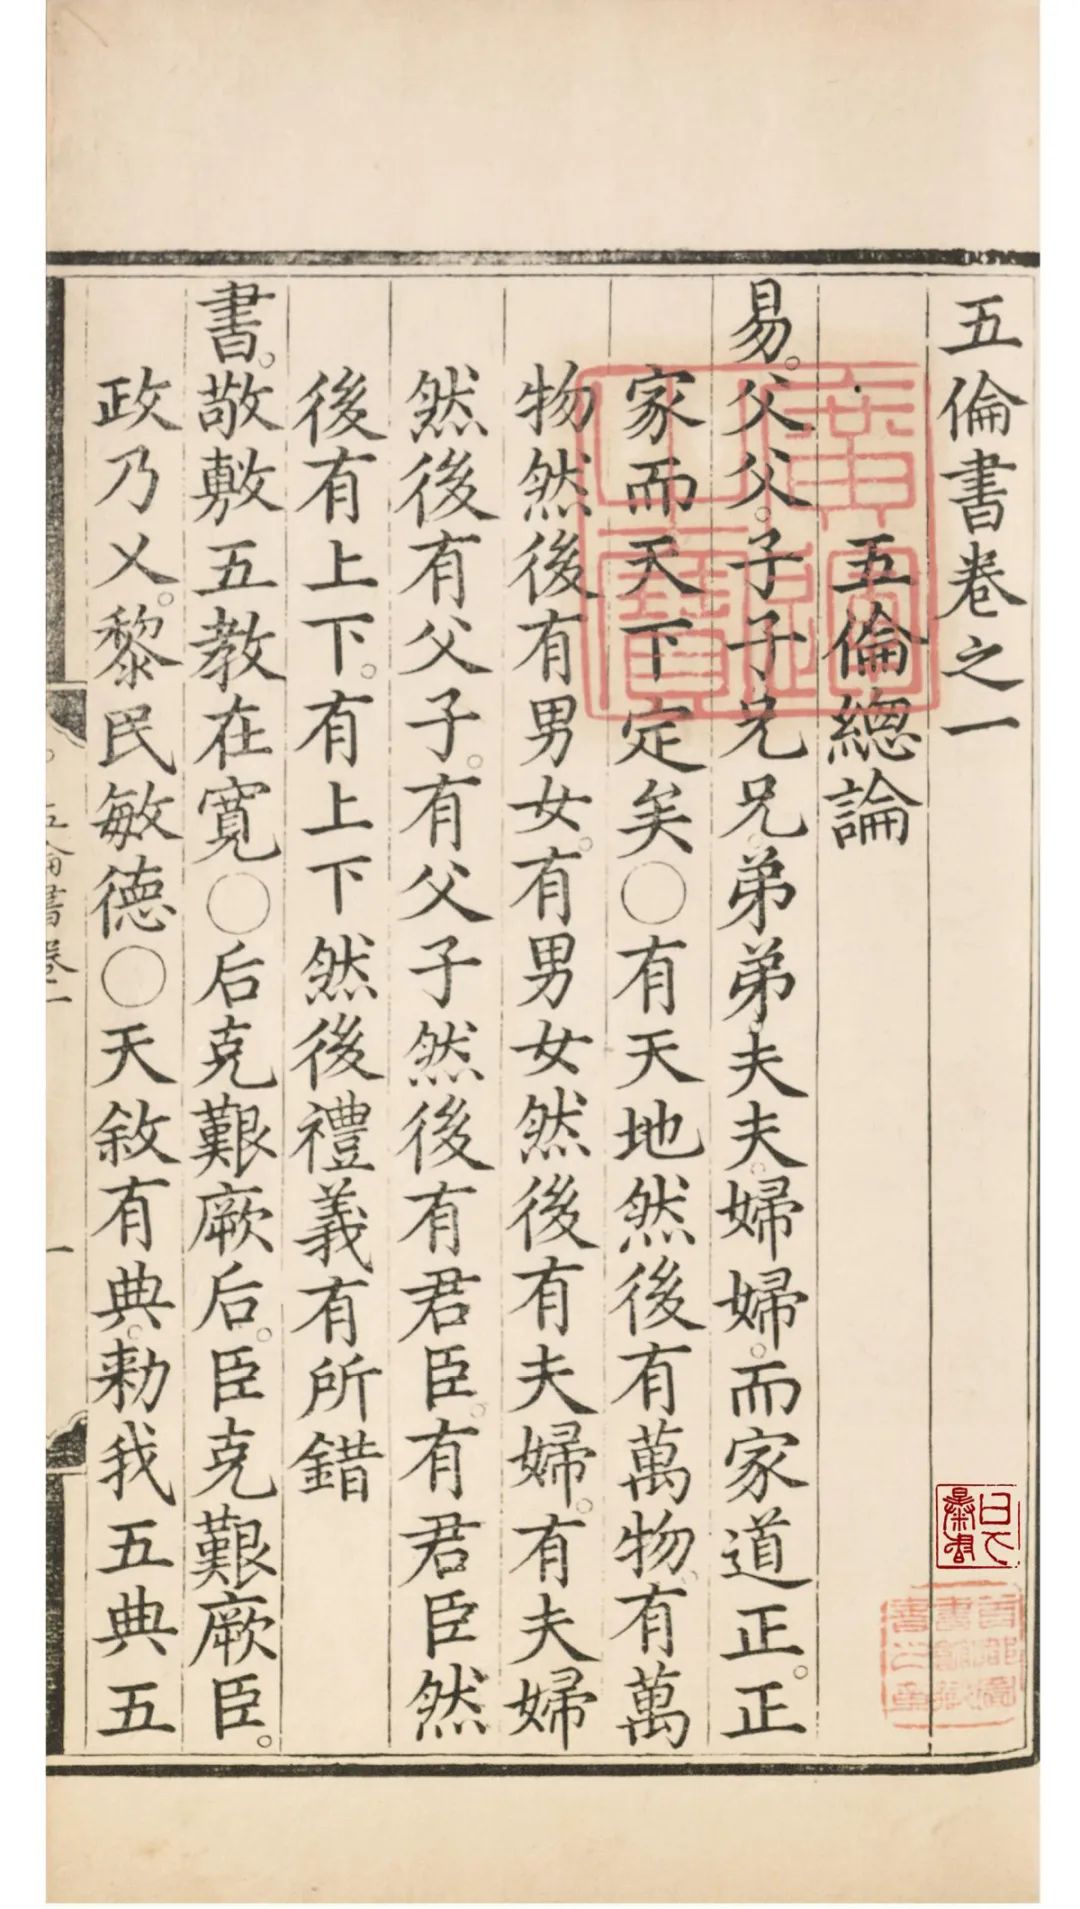 五倫書卷之一
五倫總論
易。父父。子子。兄兄。弟弟。夫夫。婦婦。而家道正。正
家而天下定矣○有天地然後有萬物。有萬
物然後有男女。有男女然後有夫婦。有夫婦
然後有父子。有父子然後有君臣。有君臣然
後有上下。有上下然後禮義有所錯
書。敬敷五教在寬○后克艱厥后。臣克艱厥臣。
政乃乂。黎民敏德○天敘有典。勑我五典五
五倫書卷一
一
廣運之寶